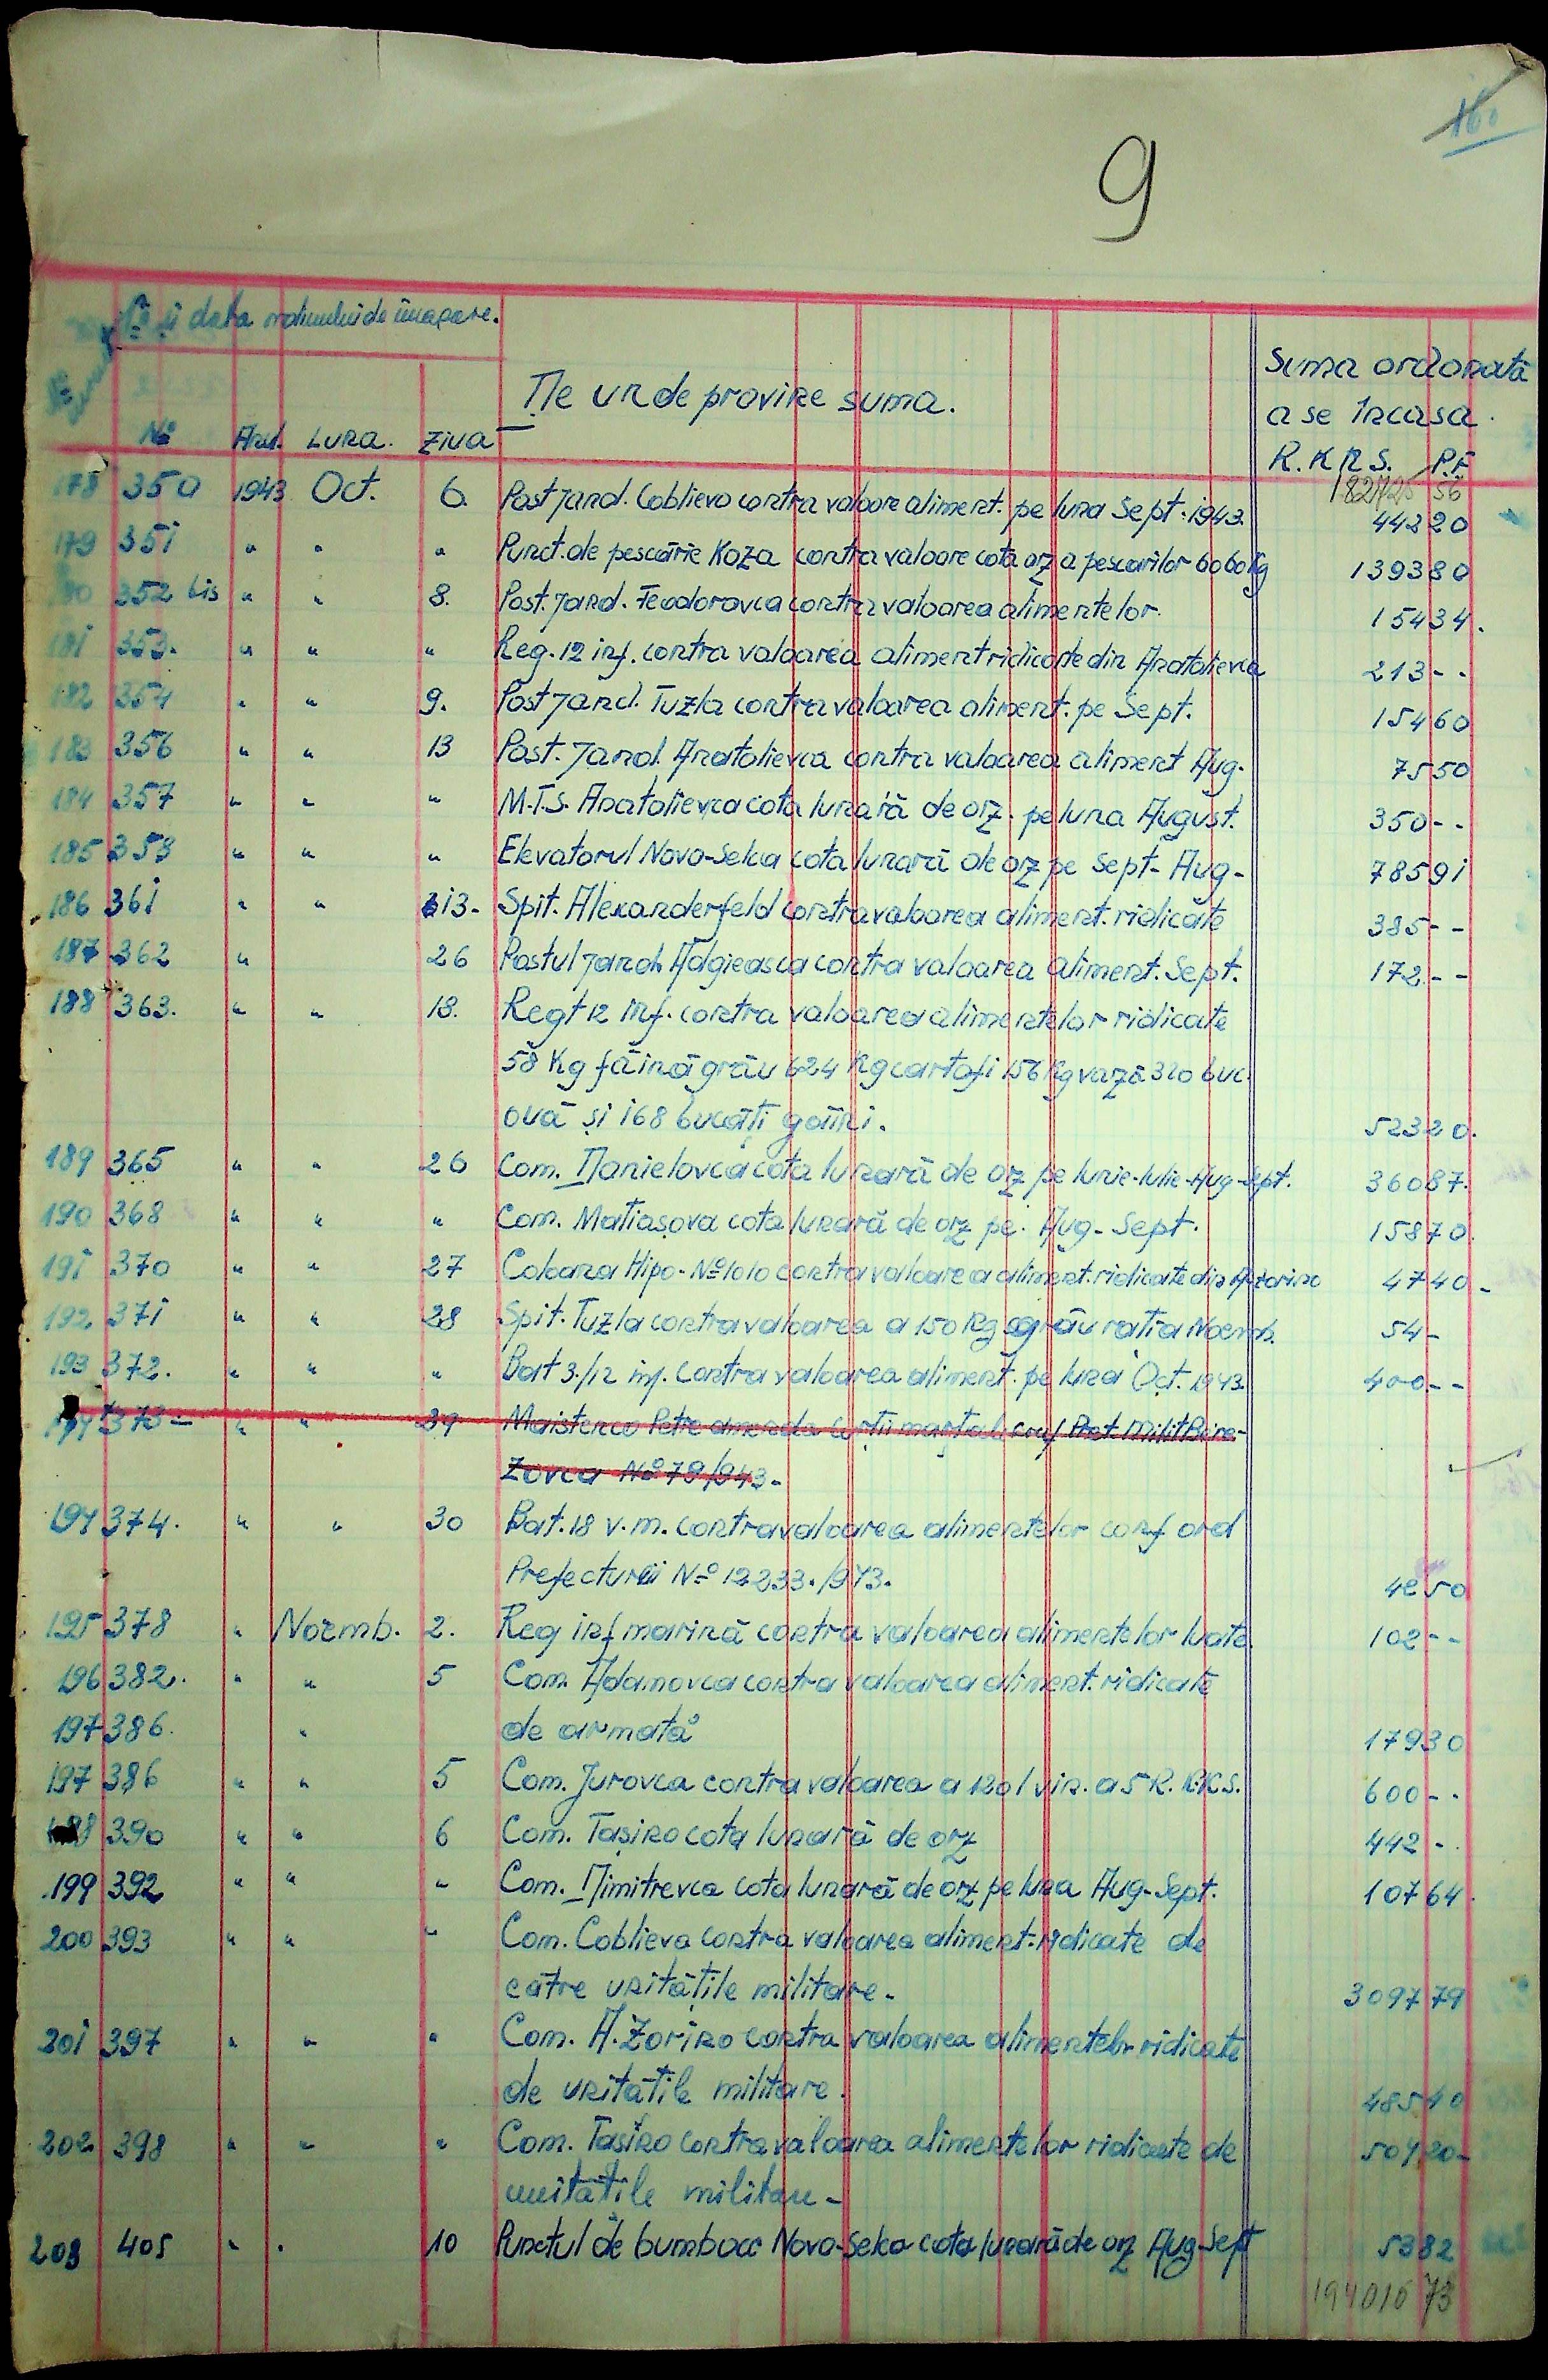 160
9
№ și data ordinului de încasare.
De unde provine suma.
Suma ordonată
a se încasa.
№ Anul. Luna. Ziua
R.K.R.S. P.F
182725 56
178 350 1943 Oct. 6. Post Jand. Coblievo contra valoare aliment. pe luna Sept. 1943. 442 20
179 351 " " " Punct. de pescărie Koza contra valoare cota orz a pescarilor 6060 Kg 1393 80
180 352 bis " " 8. Post. Jand. Feodorovca contra valoarea alimentelor. 154 34.
181 353. " " " Reg. 12 inf. contra valoarea aliment ridicate din Anatolievca 213 - -
182 354 " " 9. Post Jand. Tuzla contra valoarea aliment. pe Sept. 154 60
183 356 " " 13 Post. Jand. Anatolievca contra valoarea aliment Aug. 75 50
184 357 " " " M.T.S. Anatolievca cota lunară de orz. pe luna August. 350 - -
185 358 " " " Elevatorul Novo-Selca cota lunară de orz pe Sept- Aug- 785 91
186 361 " " 13- Spit. Alexanderfeld contra valoarea aliment. ridicate 385 - -
187 362 " 26 Postul Jand. Adgieasca contra valoarea aliment. Sept. 172 - -
188 363. " " 18. Regt 12 Inf. contra valoarea alimentelor ridicate
58 Kg făină grâu 624 Kg cartofi 156 Kg varză 320 buc.
ouă și 168 bucăți găini. 523 20.
189 365 " " 26 Com. Danielovca cota lunară de orz pe Iunie-Iulie-Aug-Sept. 360 87.
190 368 " " " Com. Matiașova cota lunară de orz pe. Aug- Sept. 158 70.
191 370 " " 27 Coloana Hipo- № 1010 contra valoarea aliment. ridicate din A. zorino 47 40 -
192 371 " " 28 Spit. Tuzla contra valoarea a 150 Kg grâu rația Noemb. 54 -
193 372. " " " Bat 3./12 inf. contra valoarea aliment. pe luna Oct. 1943. 400 - -
194 373 - " " 29 Maistenco Petre amenda curții marțiale conf Pret. Milit Bere-
zovca № 79/943-
194 374. " " 30 Bat. 18 v.m. contra valoarea alimentelor conf ord
Prefecturii № 12233./943. 50
195 378 " Noemb. 2. Reg inf marină contra valoarea alimentelor luate. 102 - -
196 382. " " 5 Com. Adamovca contra valoarea aliment. ridicate
197 386. " de armată 179 30
197 386 " " 5 Com. Jurovca contra valoarea a 120 l vin. a 5 R. R.K.S. 600 - -
198 390 " " 6 Com. Tașino cota lunară de orz 442 - .
199 392 " " " Com. Dimitrevca cota lunară de orz pe luna Aug- Sept. 107 64.
200 393 " " " Com. Coblieva contra valoarea aliment. ridicate de
către unitățile militare. 3097 79
201 397 " " " Com. A. Zorino contra valoarea alimentelor ridicate
de unitățile militare. 485 40
202 398 " " " Com. Tașino contra valoarea alimentelor ridicate de 504 20 -
unitățile militare -
203 405 " " 10 Punctul de bumbac Novo-Selca cota lunară de orz Aug-Sept 53 82
194010 73